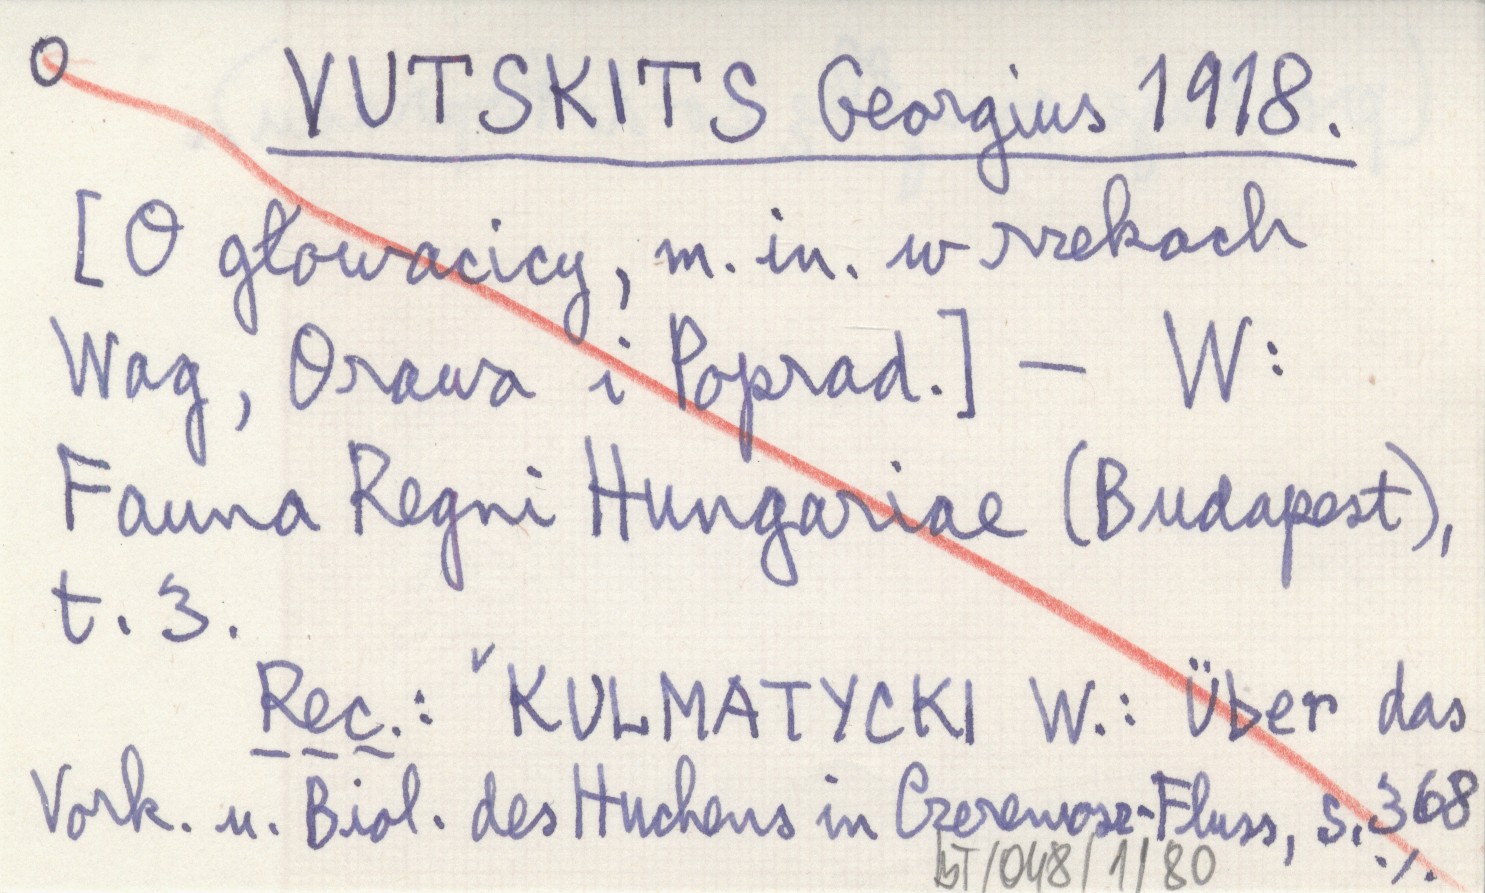 VUTSKITS Georgius 1918.
[O głowacicy, m. in. w rzekach
Wag, Orawa i Poprad.] — W:
Fauna Regni Hungariae (Budapest),
t. 3.
Rec.: KULMATYCKI W.: Über das
Vork. u. Biol. des Huchens in Czeremosz-Fluss, s. 368
./.
BT/048/1/80